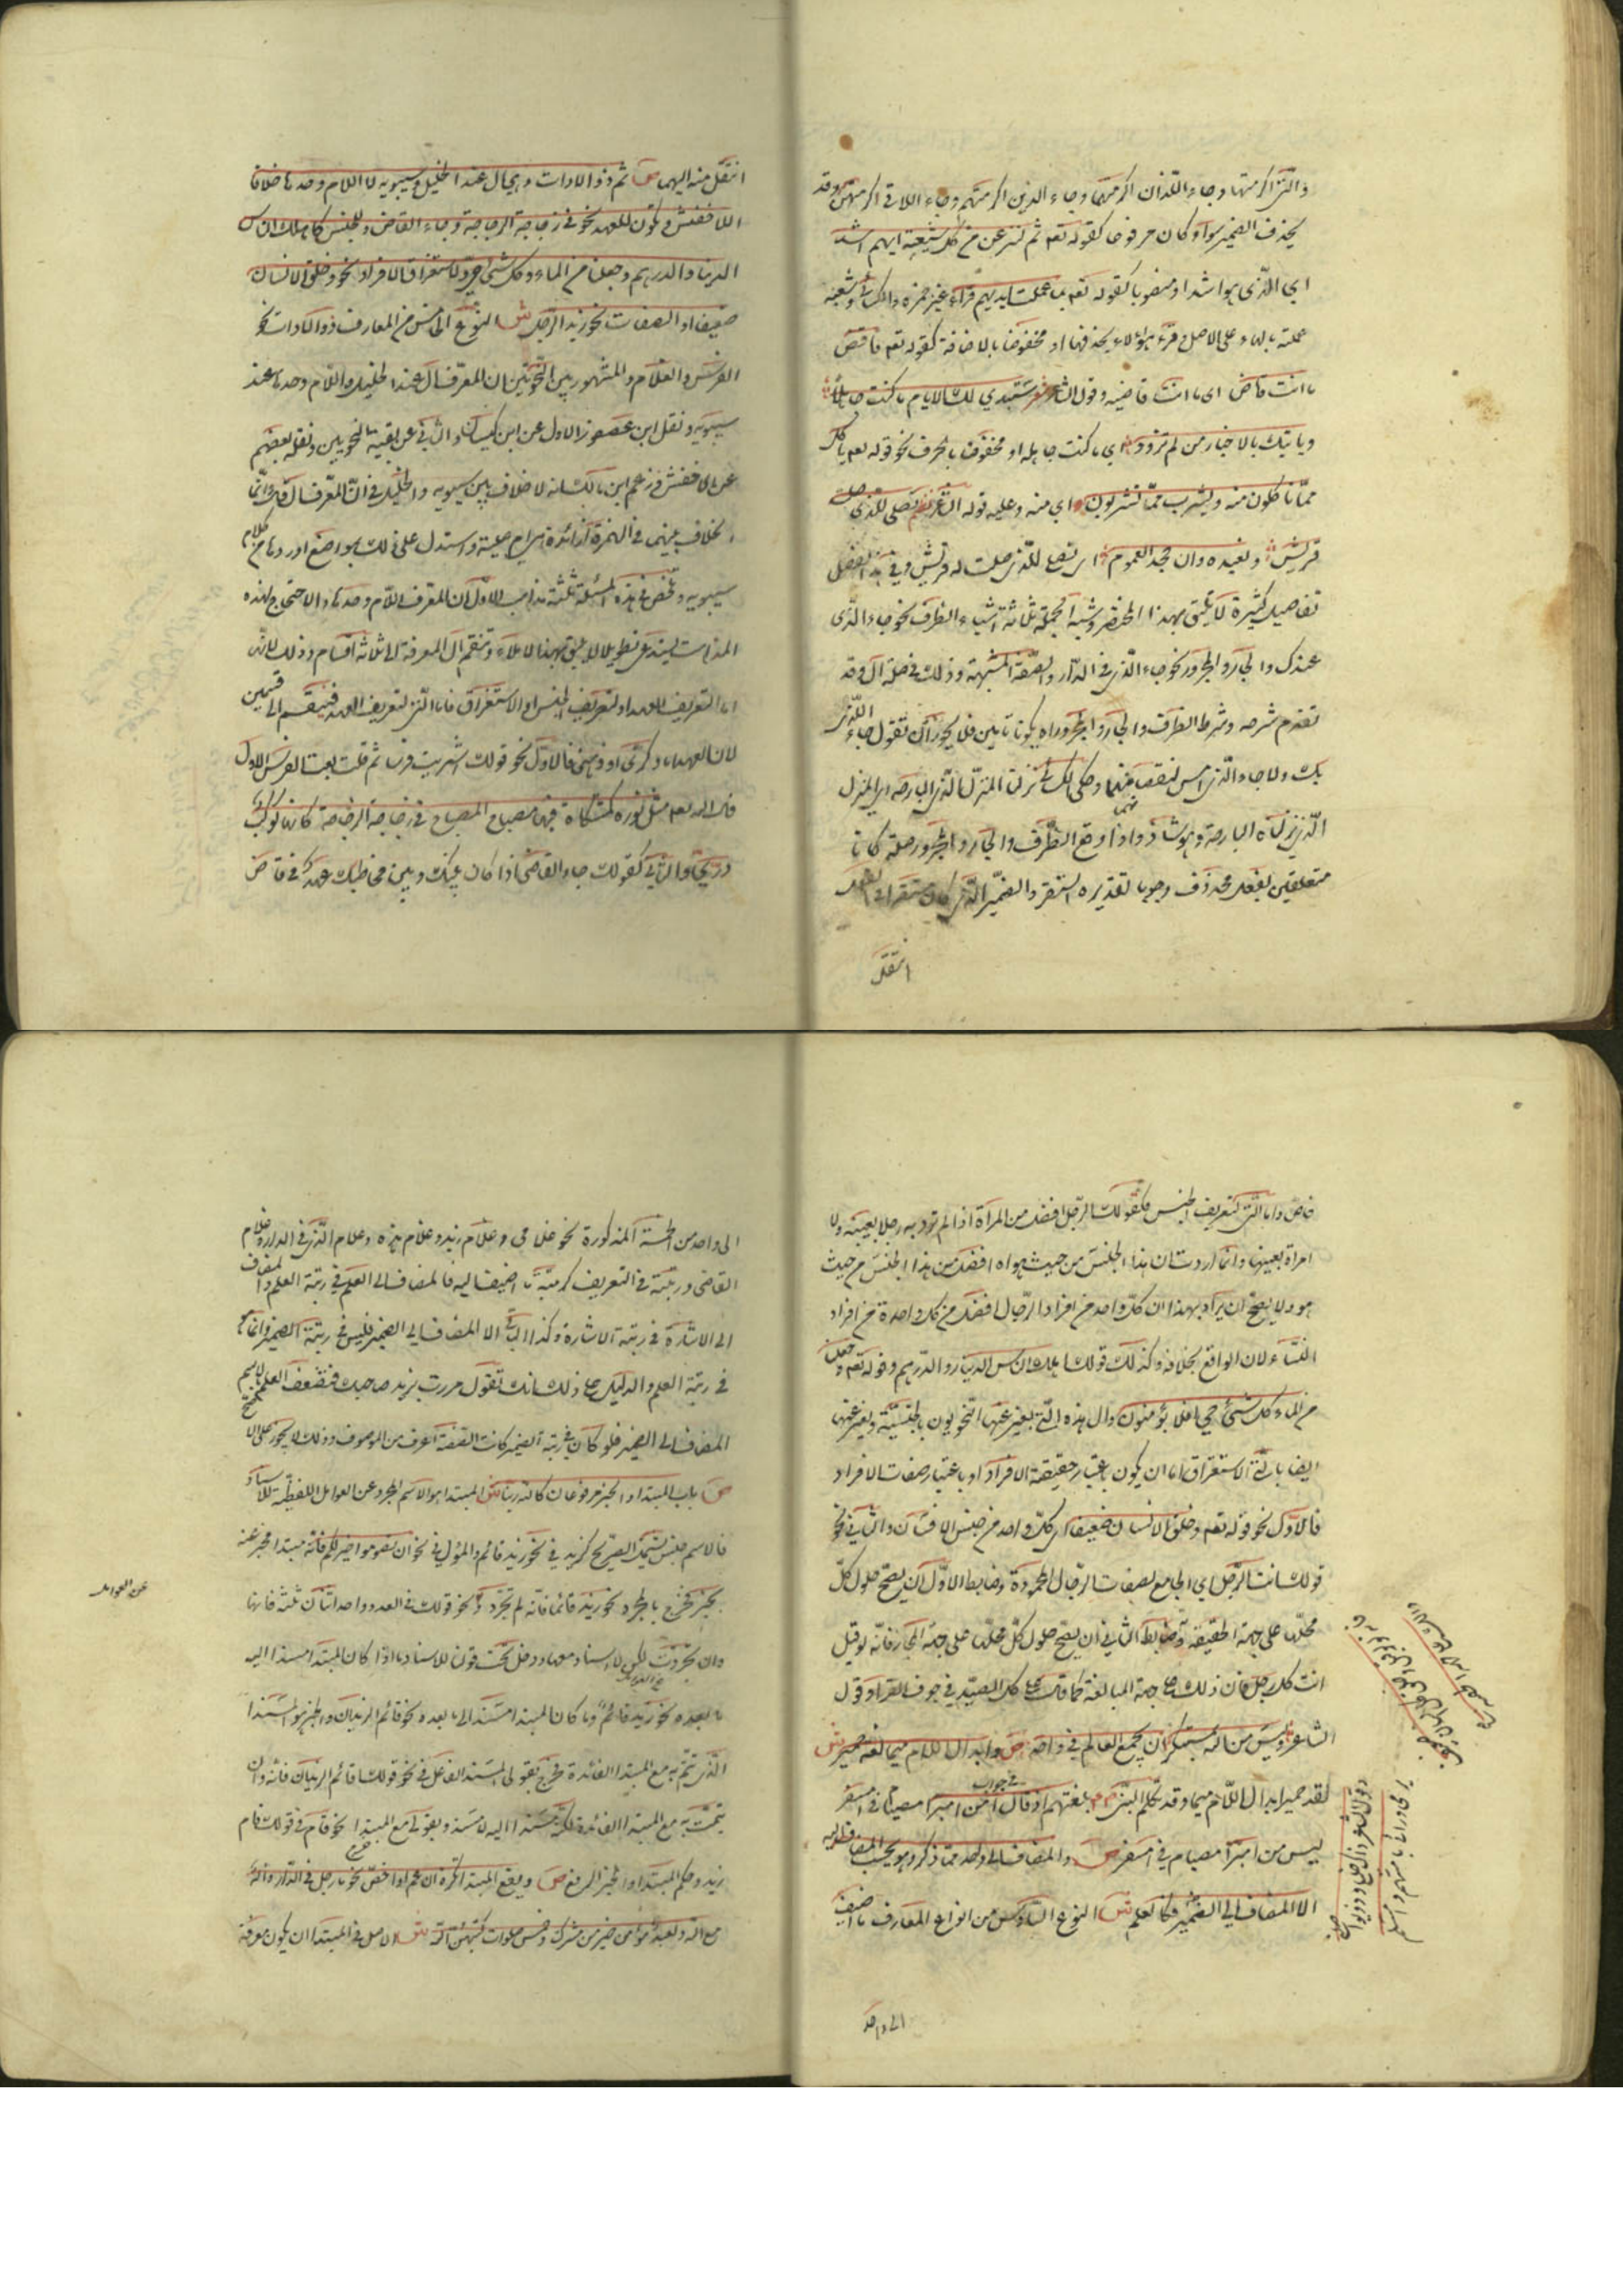 والتي اكرمتها وجاء اللذان اكرمتهما وجاء الذين اكرمتهم وجاء اللاتي اكرمتهن وقد
يحذف الضمير سواء كان مرفوعا كقوله تعم ثم لننزعن من كل شيعة ايهم اشد
اي الذي هو اشد او منصوبا كقوله تعم وما عملت ايديهم قراءة غير حمزة والكسائي وشعبة
عملته بالهاء على الاصل وقرء هؤلاء بحذفها او مخفوضا بالاضافة كقوله تعم فاقض
ما انت قاض اي ما انت قاضيه وقول الشاعر شعر ستبدي لك الايام ما كنت جاهلا
وياتيك بالاخبار من لم تزود اي ما كنت جاهله او مخفوضا بالحرف نحو قوله تعم ياكل
مما تاكلون منه ويشرب مما تشربون اي منه وعليه قوله الشاعر نصلي للذي صلت
قريش ونعبده وان جحد العموم اي نصلي للذي صلت له قريش وفي هذا الفصل
تفاصيل كثيرة لا يليق بهذا المختصر وشبه الجملة ثلاثة اشياء الظرف نحو جاء الذي
عندك والجار والمجرور نحو جاء الذي في الدار والصفة المشبهة وذلك في صلة ال وقد
تقدم شرحه وشرط الظرف والجار والمجرور ان يكونا تامين فلا يجوز ان تقول جاء الذي
بك ولا جاء الذي امس لنقصانهما وحكى الكسائي نزلنا المنزل الذي البارحة اي المنزل
الذي نزلناه البارحة وهو شاذ واذا وقع الظرف والجار والمجرور صلة كانا
متعلقين بفعل محذوف وجوبا تقديره استقر والضمير الذي كان مستقرا في الفعل
انتقل
انتقل منه اليهما ص ثم ذو الادات وهي ال عند الخليل وسيبويه لا اللام وحدها خلافا
للاخفش وتكون للعهد نحو في زجاجة الزجاجة وجاء القاضي وللجنس كاهلك الناس
الدينار والدرهم وجعلنا من الماء كل شيء حي ولاستغراق الافراد نحو وخلق الانسان
ضعيفا او الصفات نحو زيد الرجل ش النوع الخامس من المعارف ذو الادات نحو
الفرس والغلام والمشهور بين النحويين ان المعرف ال عند الخليل واللام وحدها عند
سيبويه ونقل ابن عصفور الاول عن ابن كيسان والثاني عن بقية النحويين ونقله بعضهم
عن الاخفش وزعم ابن مالك انه لا خلاف بين سيبويه والخليل في ان المعرف ال وانما
الخلاف بينهما في الهمزة ازائدة هي ام اصلية واستدل على ذلك بمواضع اوردها من كلام
سيبويه وتلخص في هذه المسئلة ثلثة مذاهب الاول ان المعرف اللام وحدها والاحتجاج لهذه
المذاهب يستدعي تطويلا لا يليق بهذا الاملاء وتنقسم ال المعرفة الى ثلاثة اقسام وذلك لانها
اما لتعريف العهد او لتعريف الجنس او الاستغراق فاما التي لتعريف العهد فتنقسم الى قسمين
لان العهد اما ذكري او ذهني فالاول نحو قولك اشتريت فرسا ثم قلت بعت الفرس الاول
قال الله تعم مثل نوره كمشكاة فيها مصباح المصباح في زجاجة الزجاجة كانها كوكب
دري والثاني كقولك جاء القاضي اذا كان بينك وبين مخاطبك عهد في قاض
خاص واما التي لتعريف الجنس فكقولك الرجل افضل من المراة اذا لم ترد به رجلا بعينه ولا
امراة بعينها وانما اردت ان هذا الجنس من حيث هو افضل من هذا الجنس من حيث
هو ولا يصح ان يراد بهذا ان كل واحد من افراد الرجال افضل من كل واحدة من افراد
النساء لان الواقع بخلافه وكذلك قولك اهلك الناس الدينار والدرهم وقوله تعم وجعلنا
من الماء كل شيء حي افلا يؤمنون وال هذه التي يعبر عنها النحويون بالجنسية ويعبر عنها
ايضا بانها التي الاستغراق اما ان يكون باعتبار حقيقة الافراد او باعتبار صفات الافراد
فالاول نحو قوله تعم وخلق الانسان ضعيفا اي كل واحد من جنس الانسان والثاني نحو
قولك انت الرجل اي الجامع لصفات الرجال المحمودة وضابط الاول ان يصح حلول كل
محلها على جهة الحقيقة وضابط الثاني ان يصح حلول كل محلها على جهة المجاز فانه لو قيل
انت كل رجل فان ذلك على جهة المبالغة كما قلت كل الصيد في جوف الفرا وقول
الشاعر وليس من الله بمستنكر ان يجمع العالم في واحد ص وابدال اللام ميما لغة حمير ش
لغة حمير ابدال اللام ميما وقد تكلم النبي بلغتهم اذ قال في جواب امن امبر امصيام في امسفر
ليس من امبر امصيام في امسفر ص والمضاف الى واحد مما ذكر وهو بحسب المضاف اليه
الا المضاف الى الضمير فكالعلم ش النوع السادس من انواع المعارف ما اضيف
الى واحد
الى واحد من الخمسة المذكورة نحو غلامي وغلام زيد وغلام هذه وغلام الذي في الدار وغلام
القاضي ورتبته في التعريف كرتبة ما اضيف اليه فالمضاف الى العلم في رتبة العلم والمضاف
الى الاشارة في رتبة الاشارة وكذا الباقي الا المضاف الى الضمير فليس في رتبة الضمير وانما هو
في رتبة العلم والدليل على ذلك انك تقول مررت بزيد صاحبك فتصف العلم بالاسم
المضاف الى الضمير فلو كان في رتبة الضمير كانت الصفة اعرف من الموصوف وذلك لا يجوز على الاصح
ص باب المبتدا والخبر مرفوعان كالله ربنا ش المبتدا هو الاسم المجرد عن العوامل اللفظية للاسناد
فالاسم جنس يشمل الصريح كزيد في نحو زيد قائم والمؤول في نحو ان تصوموا خير لكم فانه مبتدا مخبر عنه
بخير فخرج بالمجرد نحو زيد قائما فانه لم تجرد ونحو قولك في العدد واحد اثنان ثلثة فانها
عن العوامل
وان تجردت لكن لا اسناد معها ودخل تحت قولنا للاسناد ما اذا كان المبتدا مسندا اليه
ما بعده نحو زيد قائم وما كان المبتدا مسندا الى ما بعده نحو قائم الزيدان والخبر هو المسند
الذي تتم به مع المبتدا الفائدة فخرج بقولي المسند الفاعل في نحو قولك قائم الزيدان فانه وان
تمت به مع المبتدا الفائدة لكنه مسند اليه لا مسند وبقولي مع المبتدا نحو قام في قولك قام
زيد وحكم المبتدا والخبر الرفع ص ويقع المبتدا نكرة ان عم او خص نحو ما رجل في الدار وااله
مع الله ولعبد مؤمن خير من مشرك وخمس صلوات كتبهن الله ش الاصل في المبتدا ان يكون معرفة